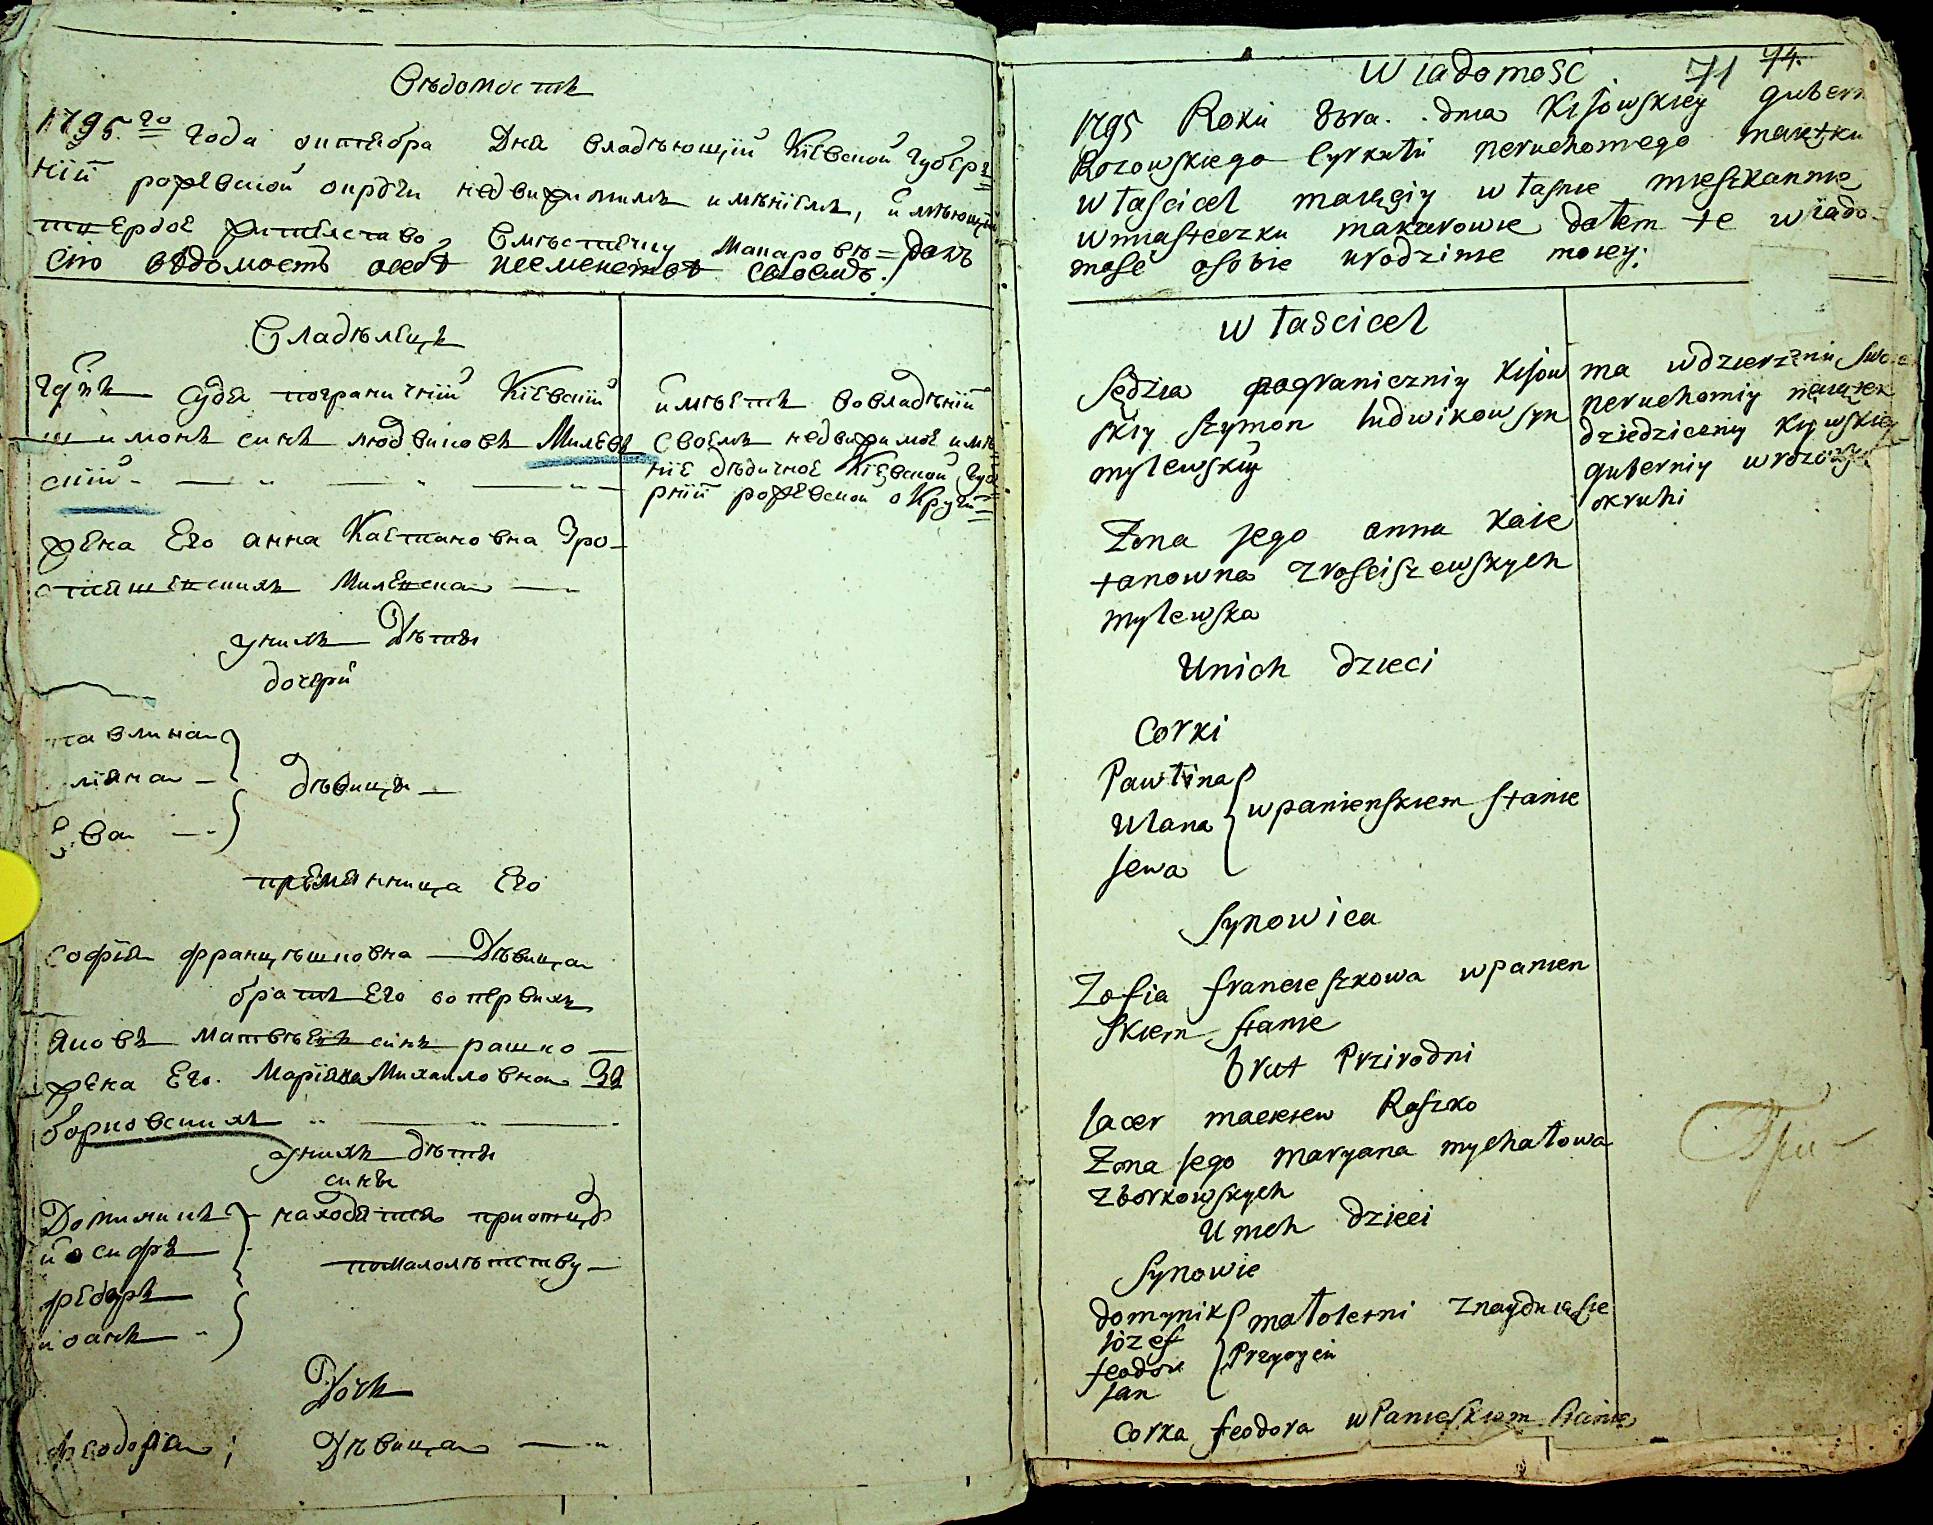 Вѣдомость
1795.го года октября Дня владѣющій Кіевской Губер=
ніи рожевской округи недвижимимъ имѣніемъ, имѣющій
твердое жителство Вмѣстечку Макаровѣ = далъ
сію вѣдомость особѣ исеменствѣ своемъ.
Владѣлецъ
Гднъ Судя пограничній Кіевскій
шимонъ синъ людвиковъ Милев
скій
жена Его анна Каетановна Зро-
стишевскихъ Милевска
унихъ Дѣти
дочери
павлина
ліяна
Ева
Дѣвици
племянница Его
Софія францѣшковна Дѣвица
братъ Его вопервихъ
Яковъ Матвѣевъ синъ рашко
жена Его. Маріяна Михаиловна Зз
борковскихъ
унихъ дѣти
сини
Доминикъ находятся приотцѣ
иосифъ
помалолѣтству
федоръ
иоанъ
Дочь
феодора; Дѣвица
имѣетъ вовладѣніи
своемъ недвижимое имѣ
ніе дѣдичное Кіевской Губе
рніи рожевской округи
Wiadomosc
71 74.
1795 Roku 8bra. dnia Kijowskiey gubern
Rozowskiego Cyrkułu neruchomego maiętku
właściciel maiącjy własne mieszkannie
wmiasteczku makarowie dałem te wiado-
mosc osobie urodzinie moiey:
właściciel
Sędzia pograniczniy Kijow
skiy Szymon ludwikow syn
mylewskiy
Zona jego anna Kaie
tanowna Zrosciszewskych
mylewska
Unich dzieci
Corki
Pawłina
Ulana wpanienskiem stanie
Jewa
Synowica
Zofia francieszkowa wpanien
skiem stanie
brat Przirodni
Jacer maciejew Raszko
Zona Jego maryana mychałowa
Zborkowskych
Unich dzieci
Synowie
domynik małoletni Znayduiąsie
Jozef
Przyoycu
feodor
Jan
Corka feodora wPanieskiem stanie
ma wdzierzeniu swo
neruchomiy maiątek
dziedziceniy Kijowskiey
guberniy wrozowskiy
okruhi